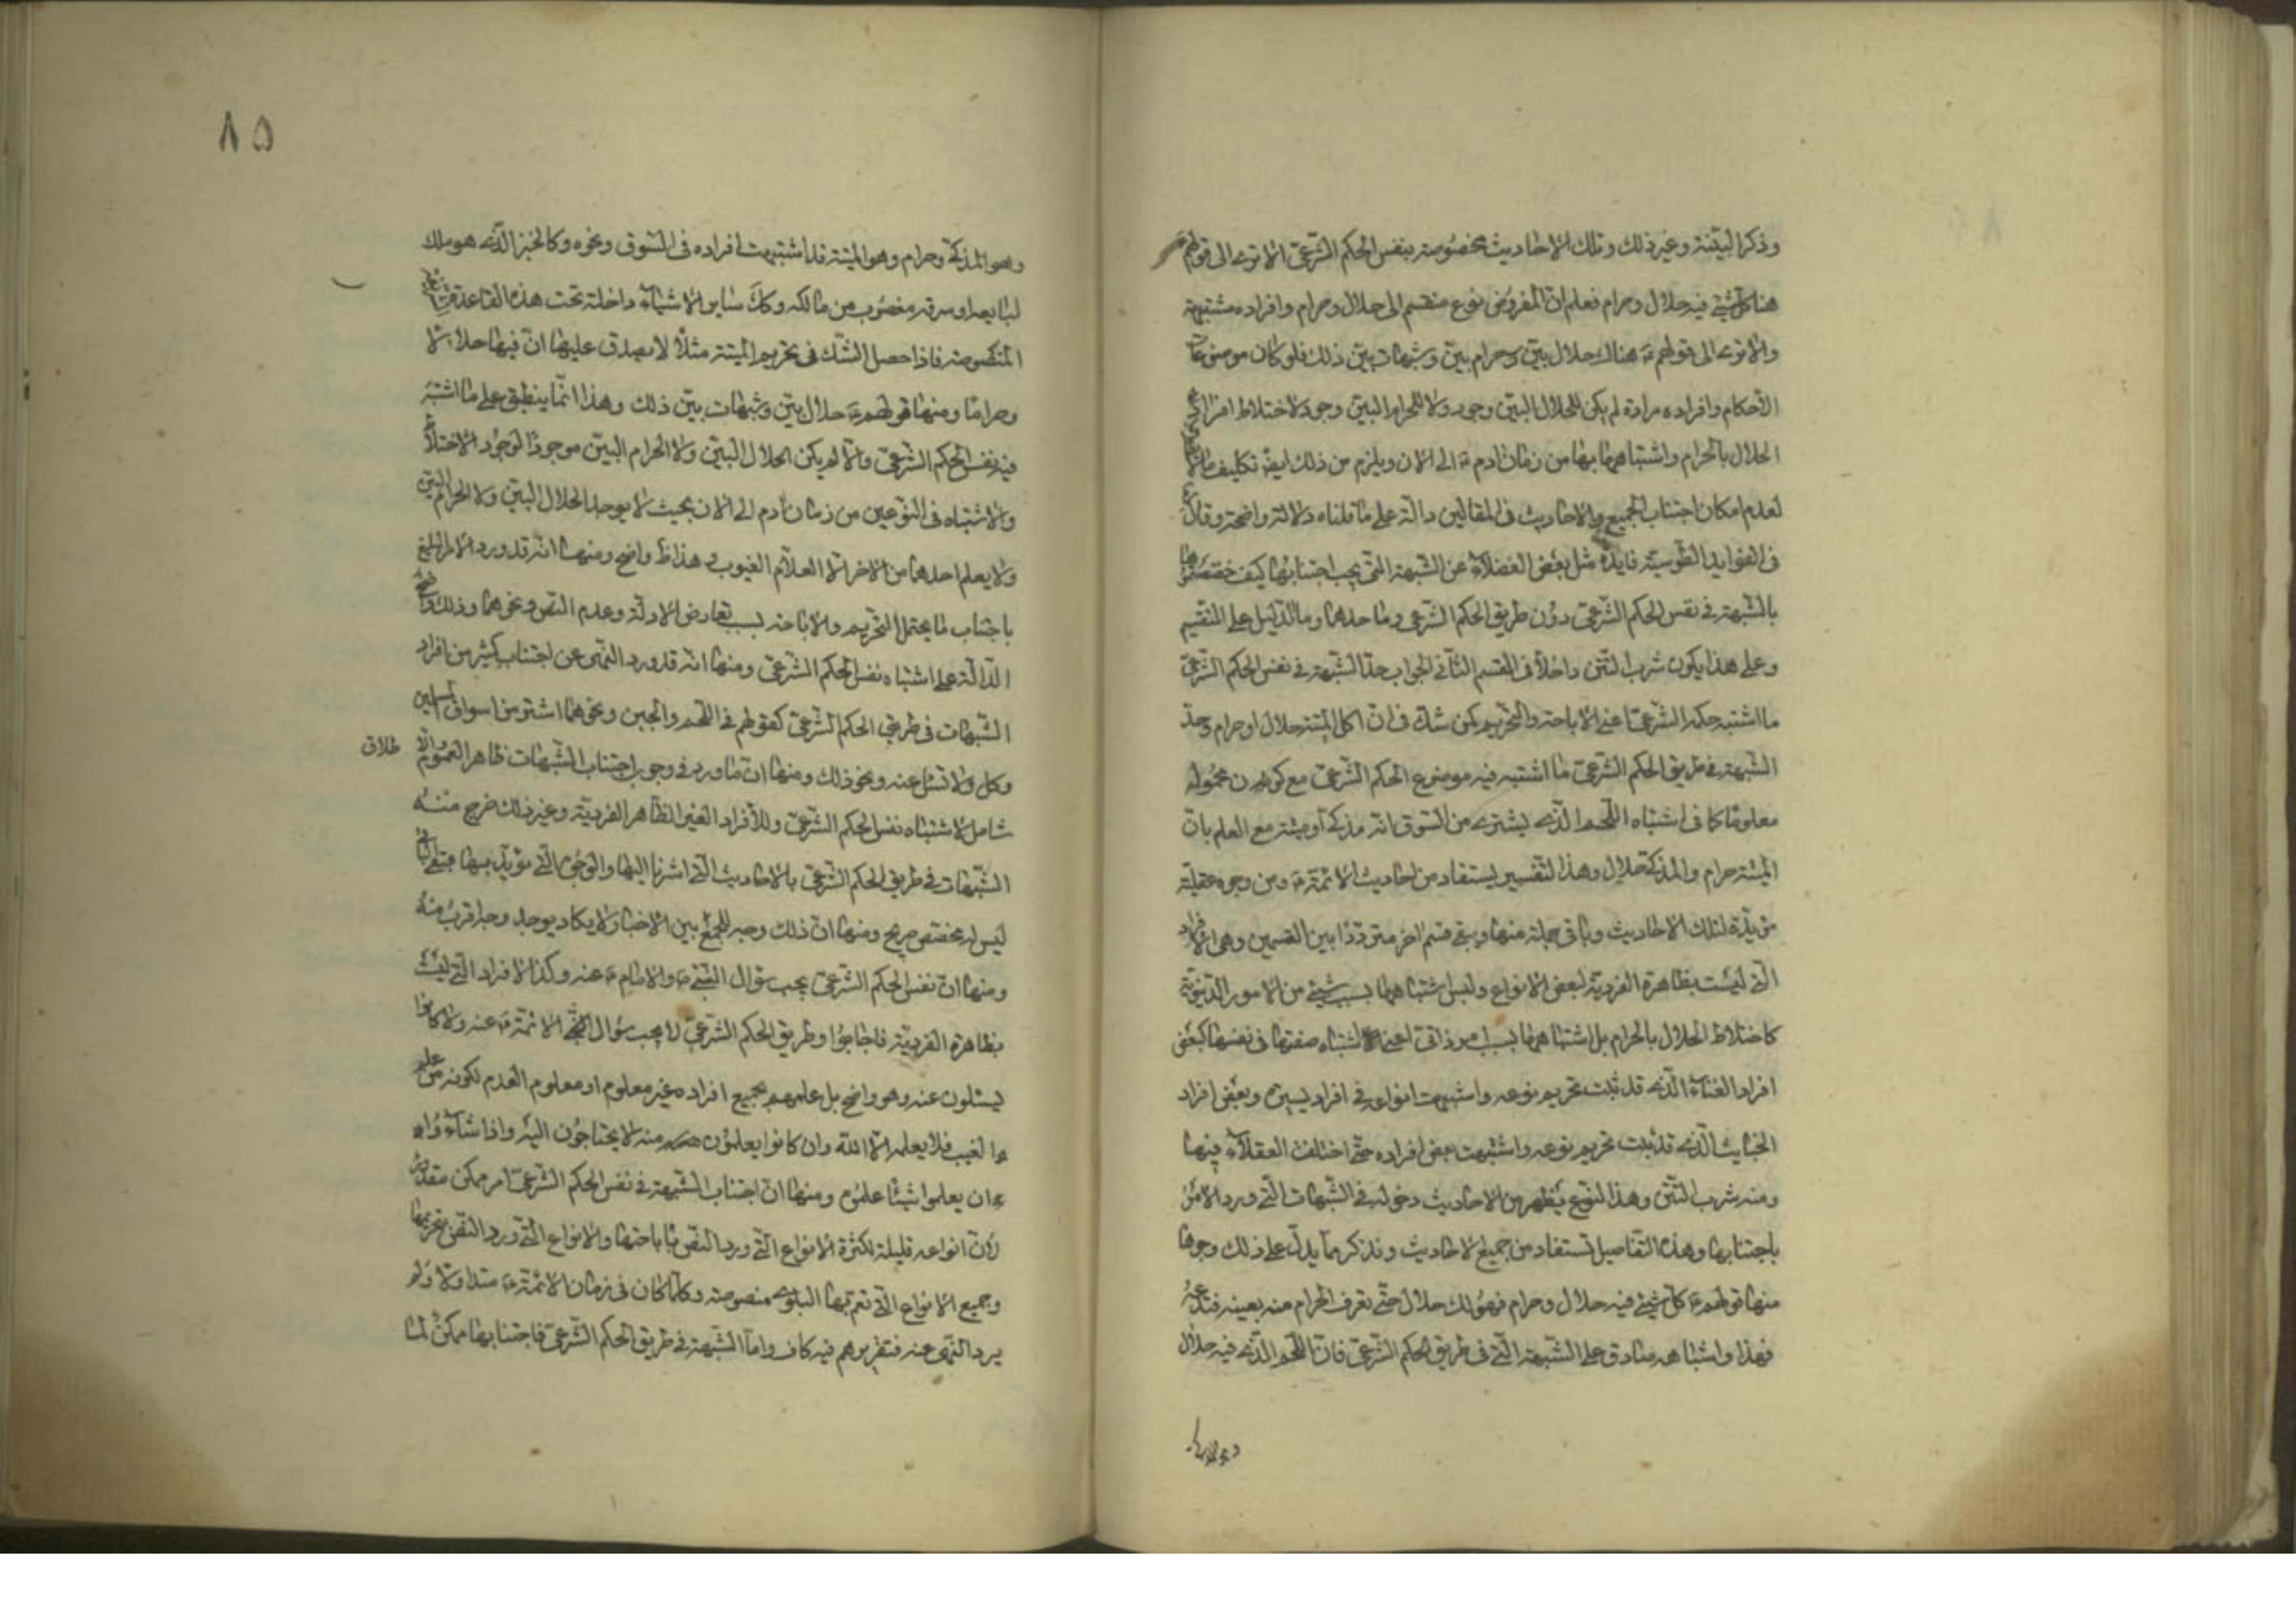 وذكر البينة وغير ذلك وتلك الاحاديث مخصوصة بنفس الحكم الشرعي الا ترى الى قولهم
هنا كل شئ فيه حلال وحرام فعلم ان المفروض نوع منقسم الى حلال وحرام وافراده مشتبهة
والا ترى الى قولهم ع هناك حلال بين وحرام بين وشبهات بين ذلك فلو كان موضوعات
الاحكام وافراده مرادة لم يكن للحلال البين وجود ولا للحرام البين وجود لاختلاط افراد
الحلال بالحرام واشتباههما بها من زمان ادم ع الى الان ويلزم من ذلك ايض تكليف ما لا
لعدم امكان اجتناب الجميع والاحاديث في المقالين دالة على ما قلناه دلالة واضحة وقال
في الفوايد الطوسية فايدة سئل بعض الفضلاء عن الشبهة التي يجب اجتنابها كيف خصصتموها
بالشبهة في نفس الحكم الشرعي دون طريق الحكم الشرعي وما حدهما وما الدليل على التقسيم
وعلى هذا يكون شرب التتن داخلا في القسم الثاني الجواب حد الشبهة في نفس الحكم الشرعي
ما اشتبه حكمه الشرعي اعني الاباحة والتحريم كمن شك في ان اكل الميتة حلال او حرام وحد
الشبهة في طريق الحكم الشرعي ما اشتبه فيه موضوع الحكم الشرعي مع كون محموله
معلوما كما في اشتباه اللحم الذي يشترى من السوق انه مذكى او ميتة مع العلم بان
الميتة حرام والمذكى حلال وهذا التفسير يستفاد من احاديث الائمة ع ومن وجوه عقلية
مؤيدة لتلك الاحاديث وياتي جملة منها وبقي قسم اخر متردد بين القسمين وهي الافراد
التي ليست بظاهرة الفردية لبعض الانواع وليس اشتباهها بسبب شئ من الامور الدنيوية
كاختلاط الحلال بالحرام بل اشتباهها بسبب امر ذاتي اعني اشتباه صفتها في نفسها كبعض
افراد الغناء الذي قد ثبت تحريم نوعه واشتبهت انواعه في افراد يسيرة وبعض افراد
الخبايث الذي قد ثبت تحريم نوعه واشتبهت بعض افراده حتى اختلف العقلاء فيها
ومنه شرب التتن وهذا النوع يظهر من الاحاديث دخوله في الشبهات التي ورد الامر
باجتنابها وهذه التفاصيل تستفاد من جميع الاحاديث ونذكر مما يدل على ذلك وجوها
منها قولهم ع كل شئ فيه حلال وحرام فهو لك حلال حتى تعرف الحرام منه بعينه فتدعه
فهذا واشباهه صادق على الشبهة التي في طريق الحكم الشرعي فان اللحم الذي فيه حلال
وهو المذكى وحرام وهو الميتة قد اشتبهت افراده في السوق ونحوه وكالخبز الذي هو ملك
لبايعه او سرقة مغصوب من مالكه وكك ساير الاشياء داخلة تحت هذه القاعدة الشريفة
المنصوصة فاذا حصل الشك في تحريم الميتة مثلا لا يصدق عليها ان فيها حلالا
وحراما ومنها قولهم ع حلال بين وشبهات بين ذلك وهذا انما ينطبق على ما اشتبه
فيه نفس الحكم الشرعي والا لم يكن الحلال البين ولا الحرام البين موجودا لوجود الاختلاط
والاشتباه في النوعين من زمان ادم الى الان بحيث لا يوجد الحلال البين ولا الحرام البين
ولا يعلم احدهما من الاخر الا العلام الغيوب وهذا ظ واضح ومنها انه قد ورد الامر البليغ
باجتناب ما يحتمل التحريم والاباحة بسبب تعارض الادلة وعدم النص ونحوهما وذلك واضح
الدلالة على اشتباه نفس الحكم الشرعي ومنها انه قد ورد النهي عن اجتناب كثير من افراد
الشبهات في طريق الحكم الشرعي كقولهم في اللحم والجبن ونحوهما اشتر من اسواق المسلمين
وكل ولا تسئل عنه ونحو ذلك ومنها ان ما ورد في وجوب اجتناب الشبهات ظاهر العموم والا
طلاق
شامل لاشتباه نفس الحكم الشرعي وللافراد الغير الظاهر الفردية وغير ذلك خرج منه
الشبهات في طريق الحكم الشرعي بالاحاديث التي اشرنا اليها والوجوه التي نؤيد بها فبقي الباقي
ليس له مخصص صريح ومنها ان ذلك وجه للجمع بين الاخبار ولا يكاد يوجد وجه اقرب منه
ومنها ان نفس الحكم الشرعي يجب سؤال النبي ص والامام ع عنه وكذا الافراد التي ليست
بظاهرة الفردية فاجابوا وطريق الحكم الشرعي لا يجب سؤال الائمة ع عنه ولا كانوا
يسئلون عنه وهو واضح بل علمهم بجميع افراده غير معلوم او معلوم العدم لكونه من علم
الغيب فلا يعلمه الا الله وان كانوا يعلمون منه ما يحتاجون اليه واذا شاؤا
ان يعلموا شيئا علموه ومنها ان اجتناب الشبهة في نفس الحكم الشرعي امر ممكن مقدور
لان انواعه قليلة لكثرة الانواع التي ورد النص باباحتها والانواع التي ورد النص بتحريمها
وجميع الانواع التي تعم بها البلوى منصوصة وكلما كان في زمان الائمة ع متداولا ولم
يرد النهي عنه فتقريرهم فيه كاف واما الشبهة في طريق الحكم الشرعي فاجتنابها ممكن لما
٨٥